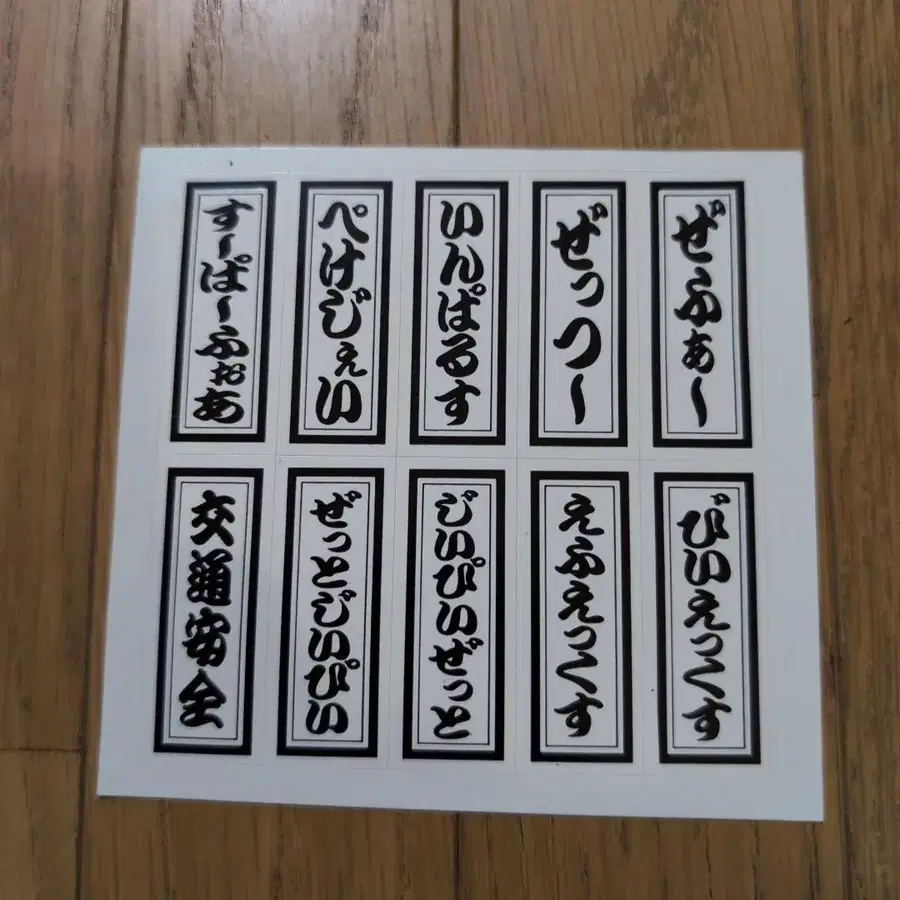 ぜふぁ〜
ぜっつ〜
いんぱるす
ぺけじぇい
す〜ぱ〜ふぉあ
びいえっくす
えふえっくす
じいぴいぜっと
ぜっとじいぴい
交通安全